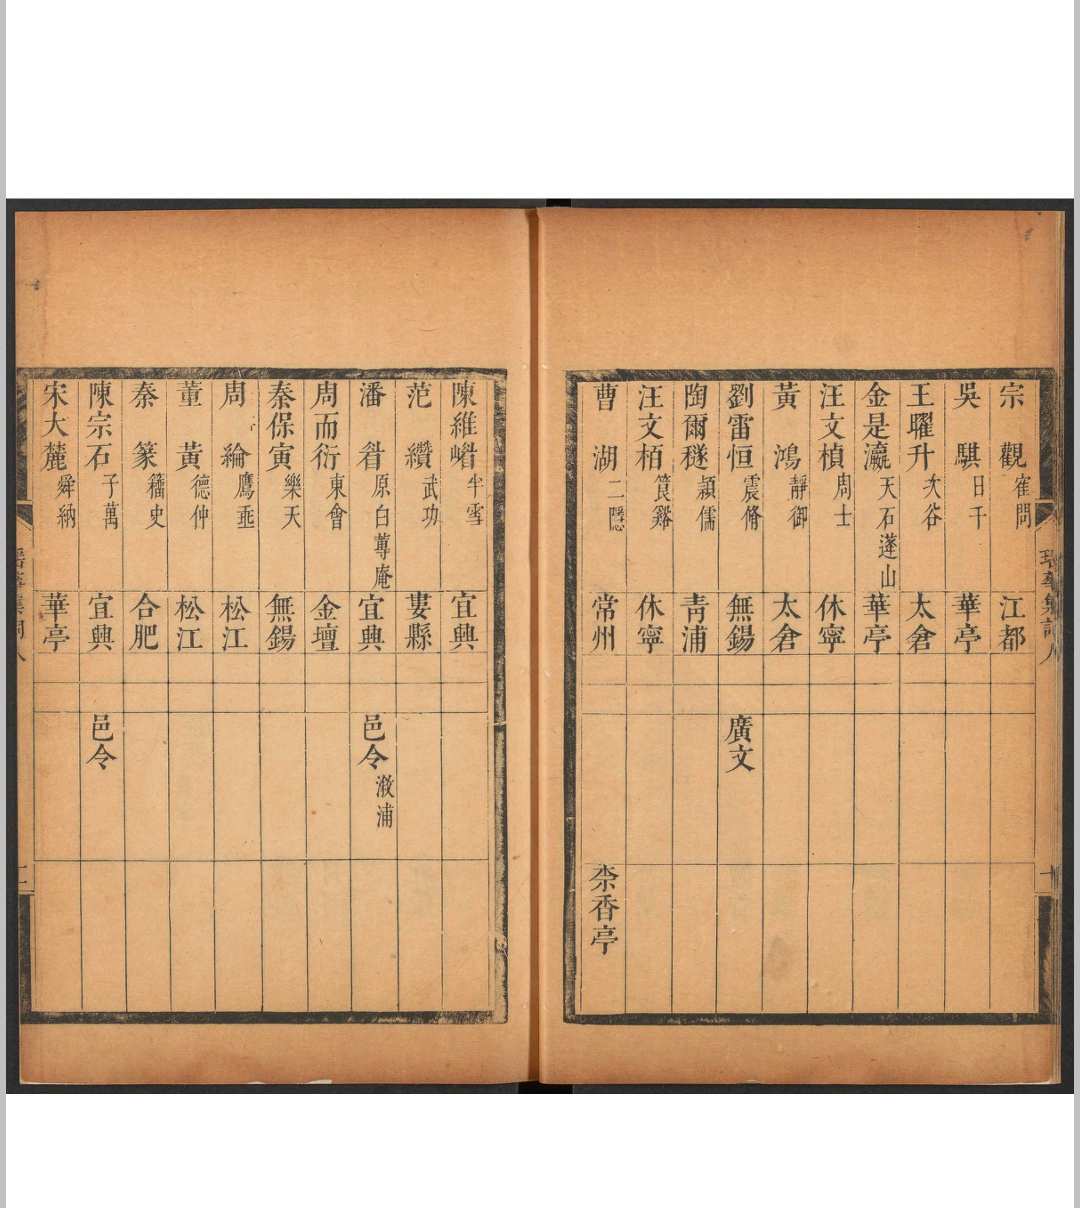 宗觀 寉問 江都
吳騏 日千 華亭
王曜升 次谷 太倉
金是瀛 天石 蓬山 華亭
汪文楨 周士 休寧
黃鴻 靜御 太倉
劉雷恒 震脩 無錫 廣文
陶爾穟 潁儒 青浦
汪文栢 筤谿 休寧
曹湖 二隱 常州 柰香亭
十
陳維嵴 半雪 宜興
范纘 武功 婁縣
潘眷 原白 蓴庵 宜興 邑令 漵浦
周而衍 東會 金壇
秦保寅 樂天 無錫
周綸 鷹垂 松江
董黃 德仲 松江
秦篆 籀史 合肥
陳宗石 子萬 宜興 邑令
宋大麓 舜納 華亭